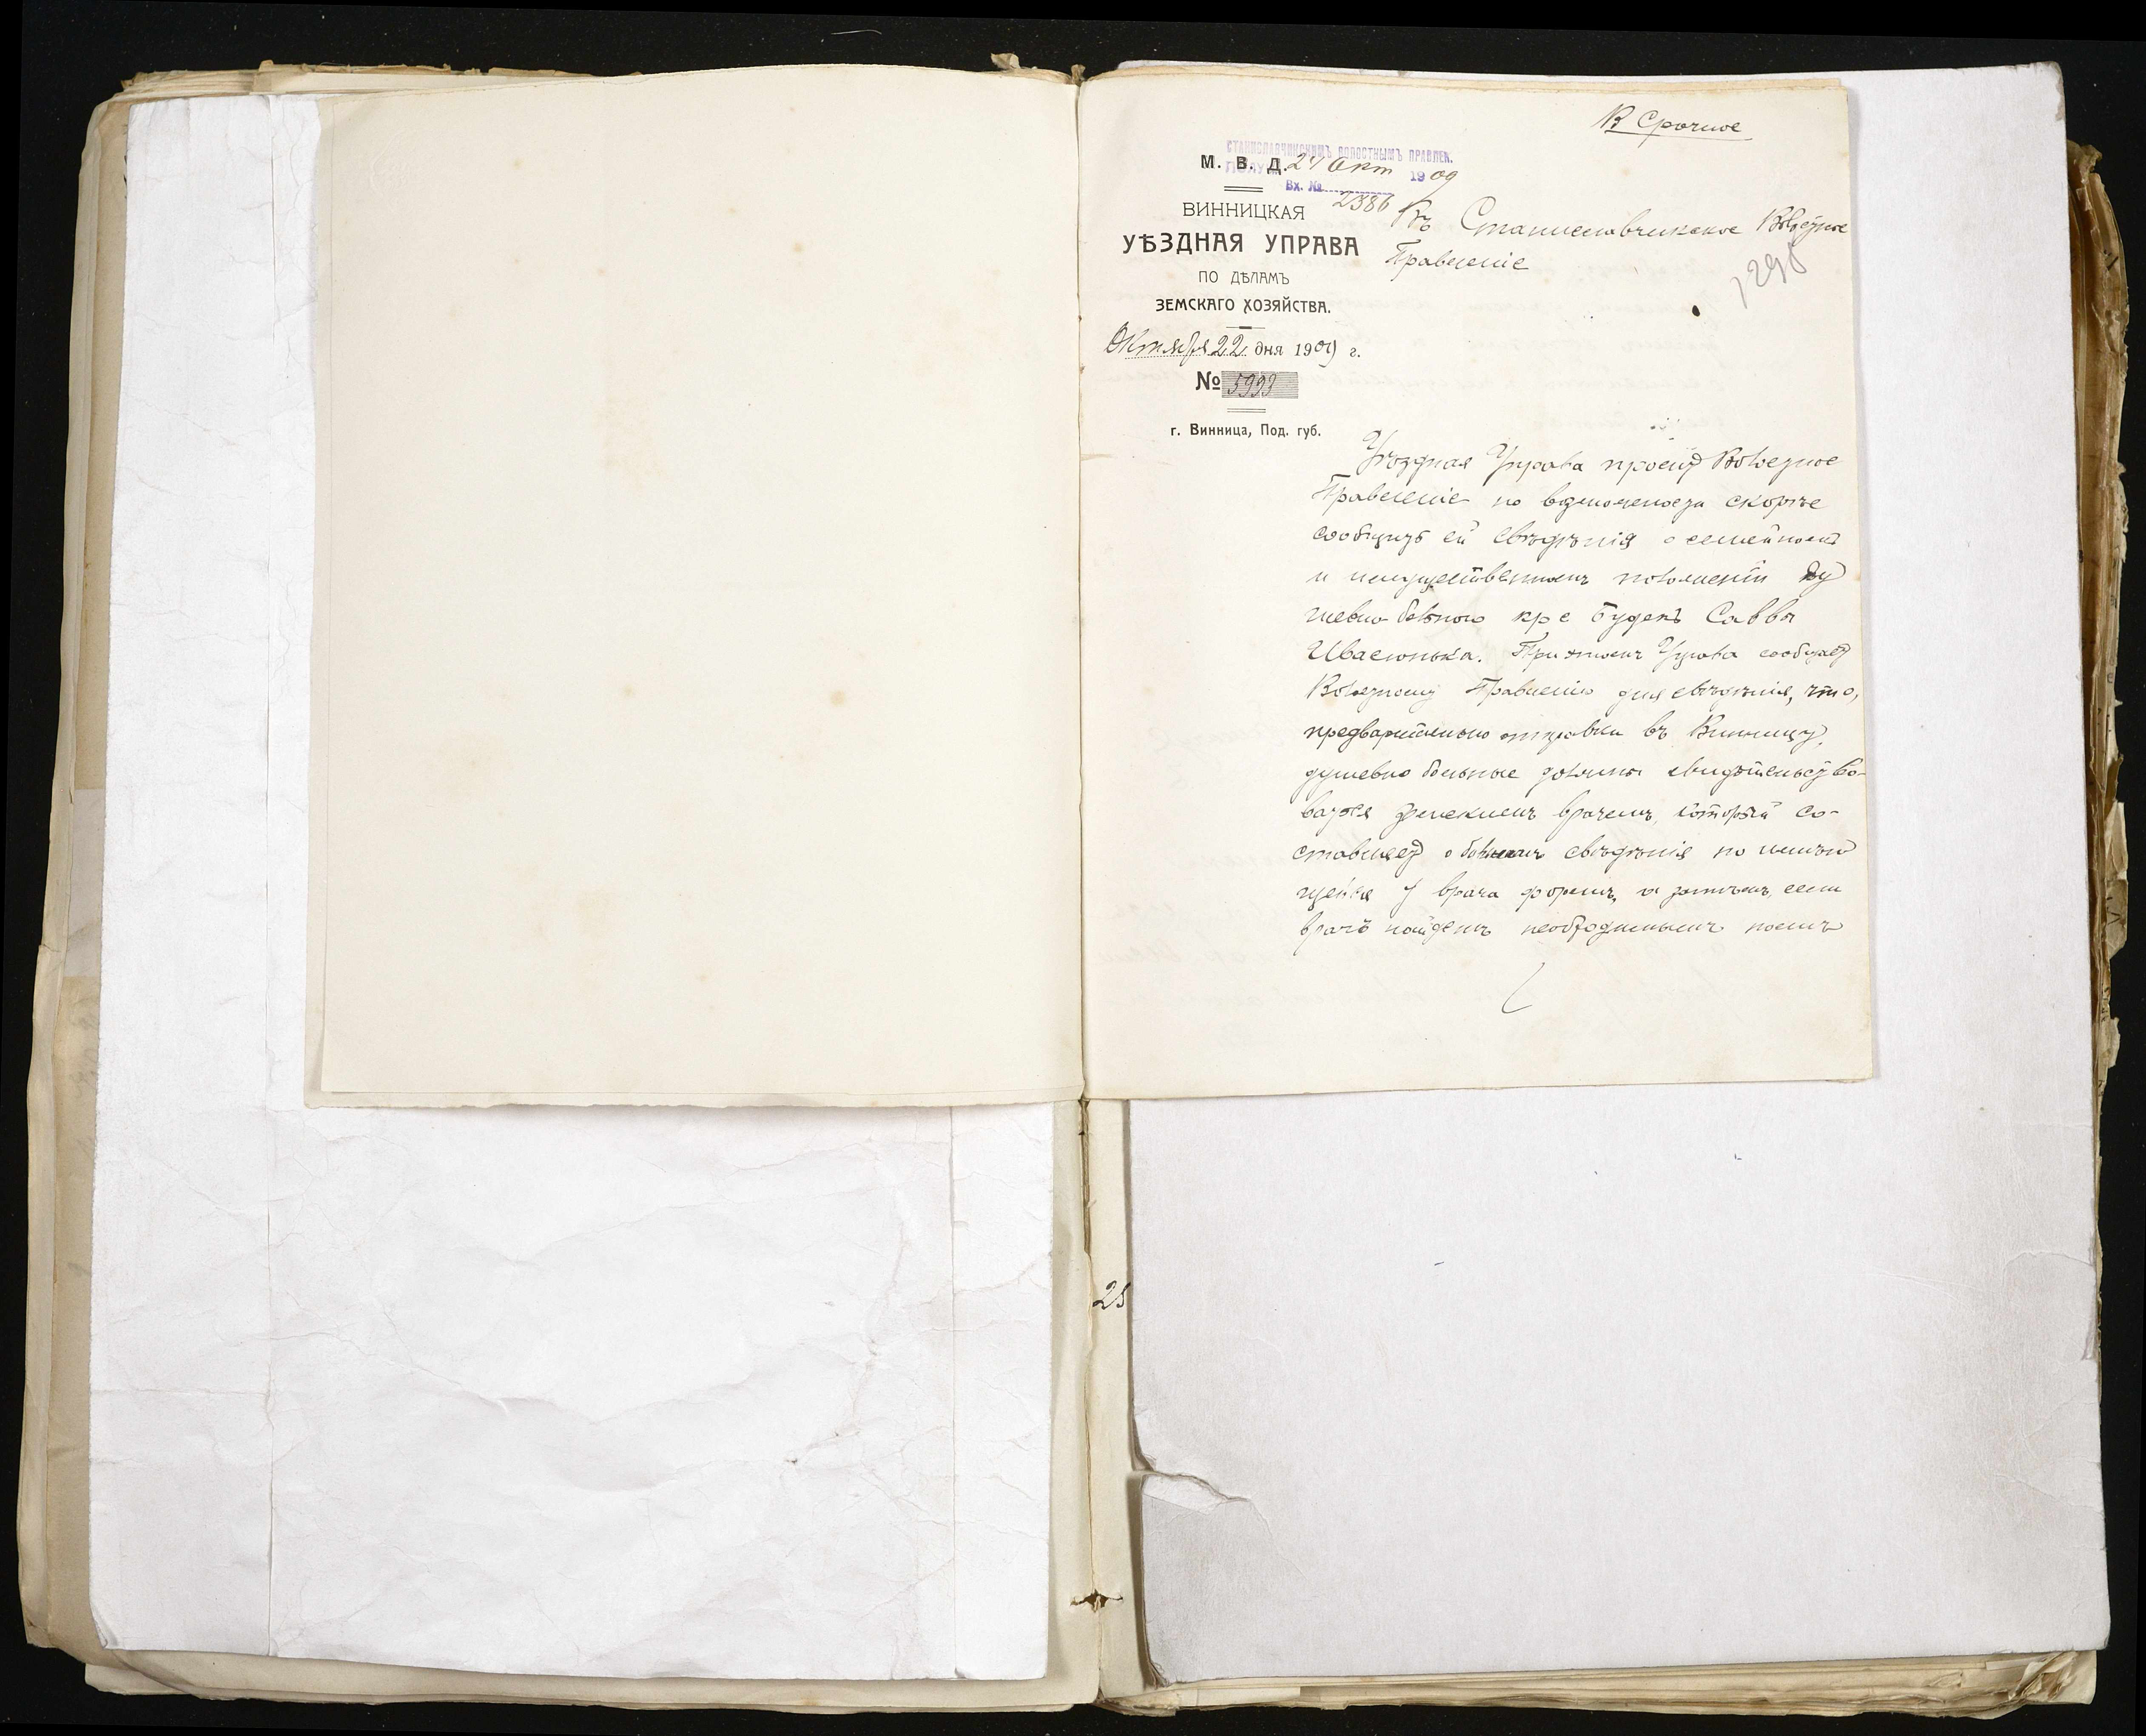 Срочное
СТАНИСЛАВЧИКСКИМЪ ВОЛОСТНЫМЪ ПРАВЛЕН.
М. В. Д.
24 Окт 1909
Вх. № 2386
ВИННИЦКАЯ
УѢЗДНАЯ УПРАВА
ПО ДѢЛАМЪ
ЗЕМСКАГО ХОЗЯЙСТВА.
Октября 22 дня 1909 г.
№ 5993
г. Винница, Под. губ.
Въ Станиславчикское Волостное
Правленіе
Уѣздная Управа проситъ Волостное
Правленіе по возможности скорѣе
сообщить ей свѣдѣнія о семейномъ
и имущественномъ положеніи ду
шевно-больного кр с Будекъ Саввы
Ивасюнька. При этомъ Управа сообщаетъ
Волостному Правленію для свѣдѣнія, что,
предварительно отправки въ Винницу,
душевно больные должны свидѣтельство-
ваться земскимъ врачемъ, который со-
ставляетъ о больномъ свѣдѣнія по имѣю
щейся у врача формѣ, и затѣмъ, если
врачъ найдетъ необходимымъ помѣ
25